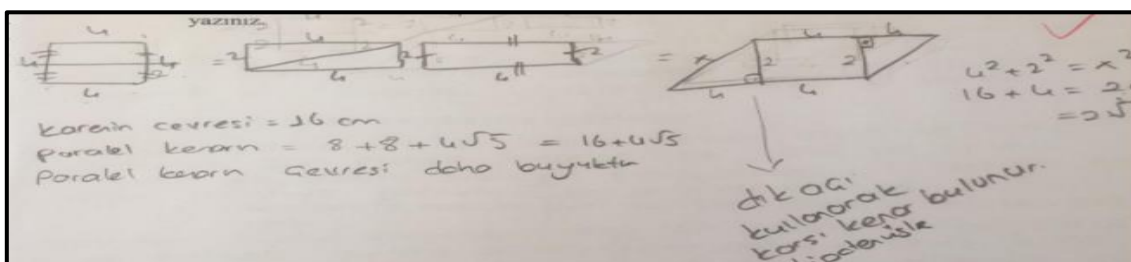 yazınız.
4 4 4 4
4 4 = 2 2 2 = x 2 2
2
4 4 4 4 4
4² + 2² = x²
16 + 4 = 2
= 2√
karenin çevresi = 16 cm
Paralel kenarın = 8 + 8 + 4√5 = 16 + 4√5
Paralel kenarın çevresi daha büyüktür
dik açı
kullanarak
karşı kenar bulunur.